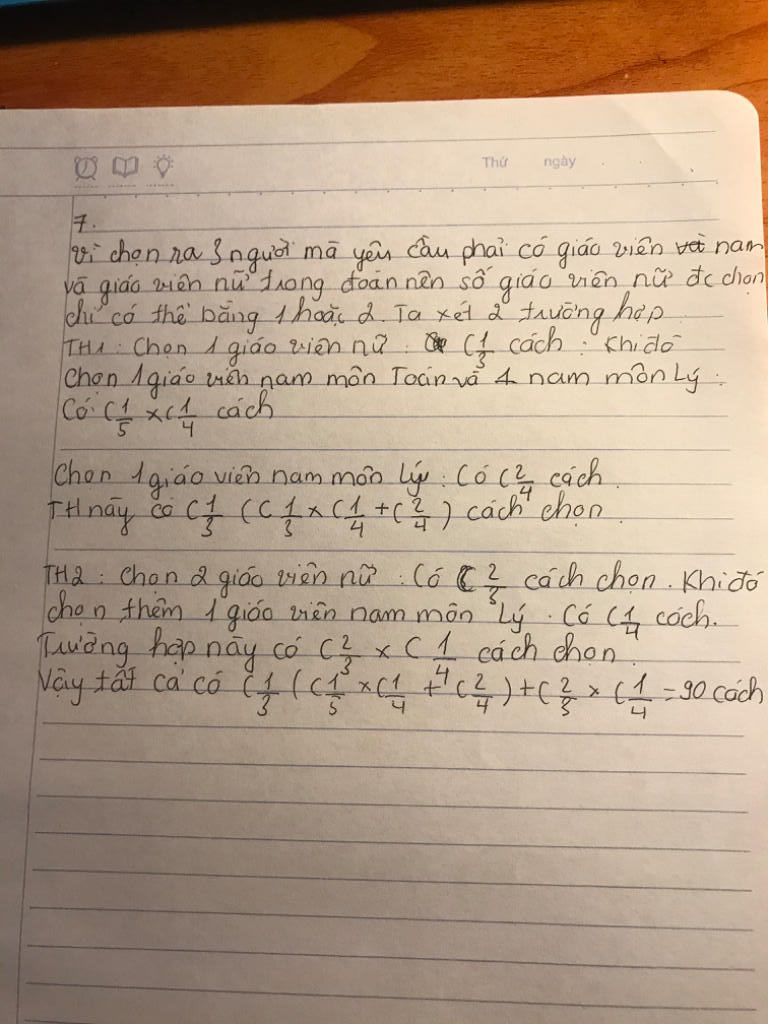 Thứ ngày
7.
Vì chọn ra 3 người mà yêu cầu phải có giáo viên nam
và giáo viên nữ trong đoàn nên số giáo viên nữ đc chọn
chỉ có thể bằng 1 hoặc 2. Ta xét 2 trường hợp
TH1: Chọn 1 giáo viên nữ: C 1/3 cách. Khi đó
chọn 1 giáo viên nam môn Toán và 1 nam môn Lý:
Có: C 1/5 × C 1/4 cách
Chọn 1 giáo viên nam môn Lý: Có C 2/4 cách.
TH này có C 1/3 (C 1/3 × C 1/4 + C 2/4) cách chọn.
TH2: Chọn 2 giáo viên nữ: Có C 2/3 cách chọn. Khi đó
chọn thêm 1 giáo viên nam môn Lý. Có C 1/4 cách.
Trường hợp này có C 2/3 × C 1/4 cách chọn.
Vậy tất cả có C 1/3 (C 1/5 × C 1/4 + C 2/4) + C 2/3 × C 1/4 = 90 cách